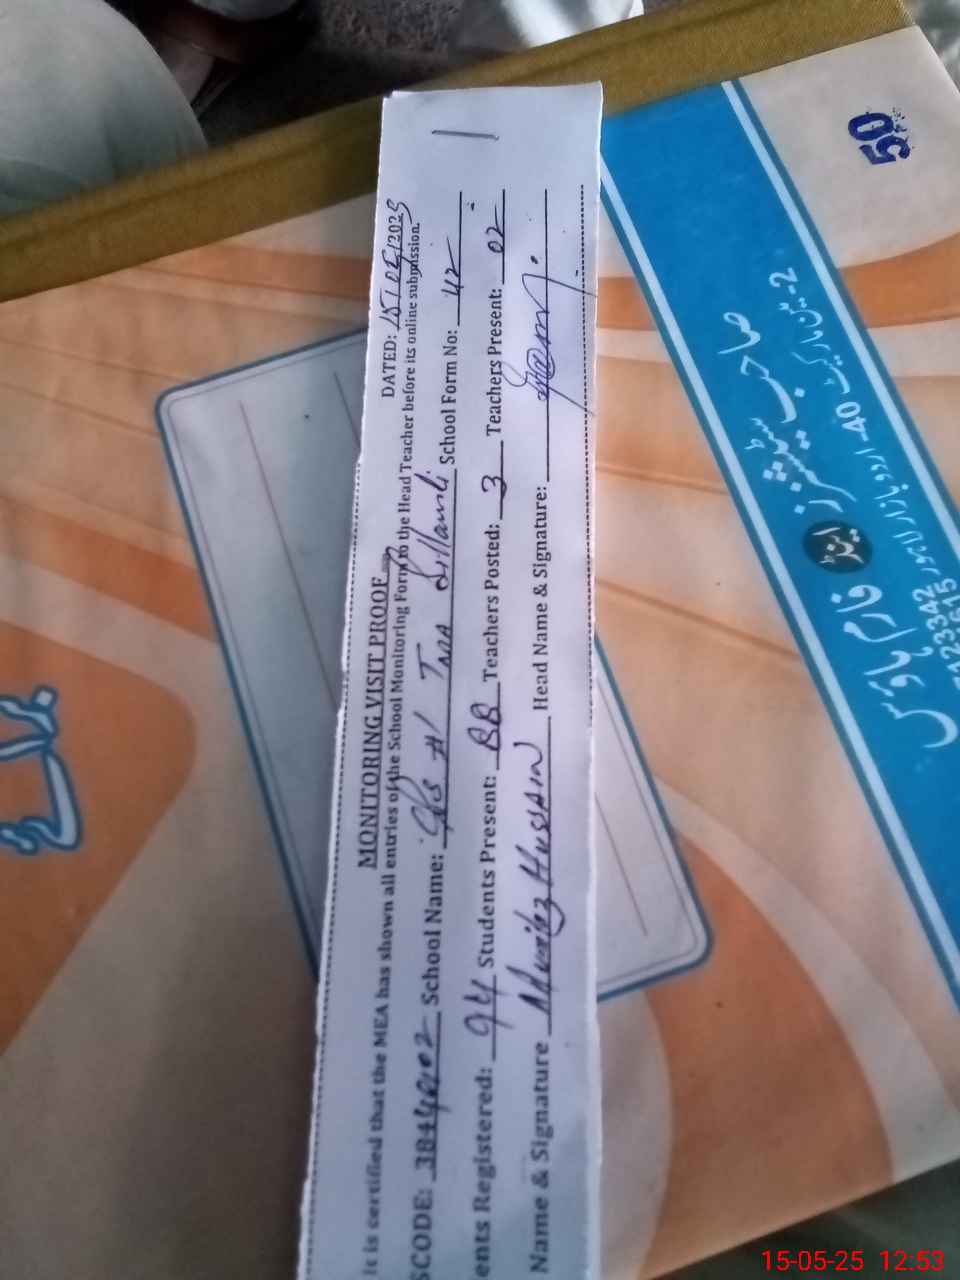 MONITORING VISIT PROOF
DATED: 15/05/2025
It is certified that the MEA has shown all entries of the School Monitoring Form to the Head Teacher before its online submission.
SCODE: School Name: #1 School Form No: 42
ents Registered: 94 Students Present: 88 Teachers Posted: 3 Teachers Present: 02
Name & Signature Hussain Head Name & Signature:
50
برائے
صاحب سٹیشنرز اینڈ فارم ہاؤس
2- مارکیٹ 40- اردو بازار لاہور
15-05-25 12:53